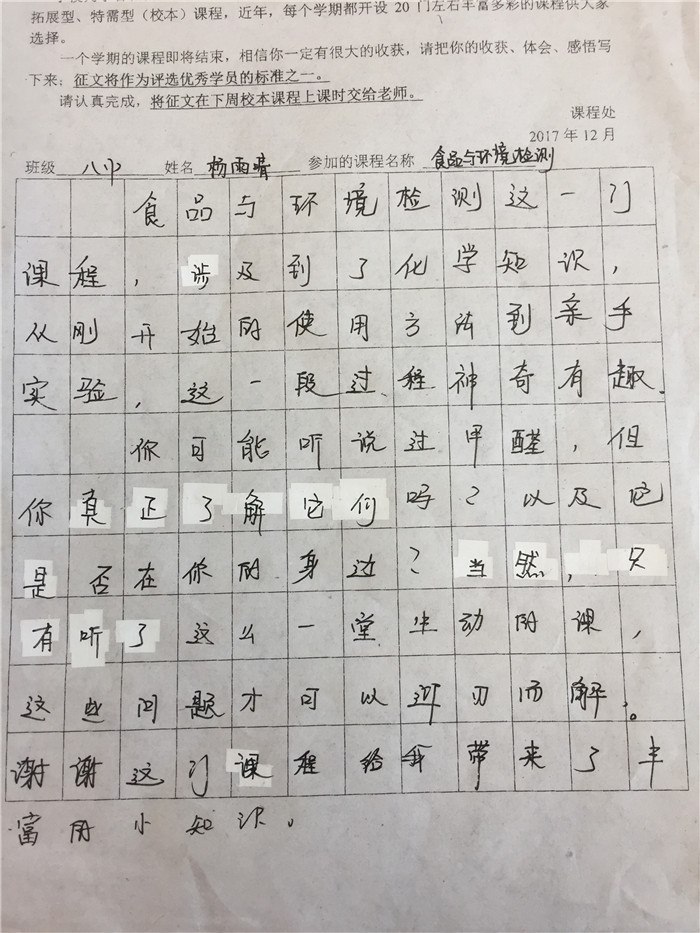 拓展型、特需型（校本）课程，近年，每个学期都开设 20 门左右丰富多彩的课程供大家
选择。
一个学期的课程即将结束，相信你一定有很大的收获，请把你的收获、体会、感悟写
下来；征文将作为评选优秀学员的标准之一。
请认真完成，将征文在下周校本课程上课时交给老师。
课程处
2017 年 12 月
班级 姓名 杨雨晴 参加的课程名称 食品与环境检测
食品与环境检测这一门
课程，涉及到了化学知识，
从刚开始的使用方法到亲手
实验，这一段过程神奇有趣。
你可能听说过甲醛，但
你真正了解它们吗？以及它
是否在你的身边？当然，只
有听了这么一堂生动的课，
这些问题才可以迎刃而解。
谢谢这门课程给我带来了丰
富的小知识。